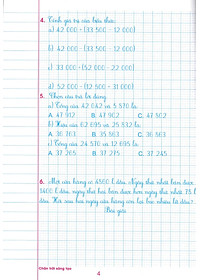 4. Tính giá trị của biểu thức.
a) 42 000 - (33 500 - 12 000)
b) 42 000 - (33 500 - 12 000)
c) 33 000 + (52 000 - 22 000)
d) 52 000 - (12 500 + 31 000)
5. Chọn câu trả lời đúng.
a) Tổng của 42 042 và 5 870 là:
A. 47 912 B. 47 902 C. 47 502
b) Hiệu của 62 695 và 25 832 là:
A. 36 763 B. 35 563 C. 36 563
c) Tổng của 24 570 và 12 695 là:
A. 37 265 B. 37 275 C. 37 245
6. Một cửa hàng có 6500 l dầu. Ngày thứ nhất bán được
1400 l dầu, ngày thứ hai bán được hơn ngày thứ nhất 75 l
dầu. Hỏi sau hai ngày cửa hàng còn lại bao nhiêu lít dầu?
Bài giải
Chân trời sáng tạo
4